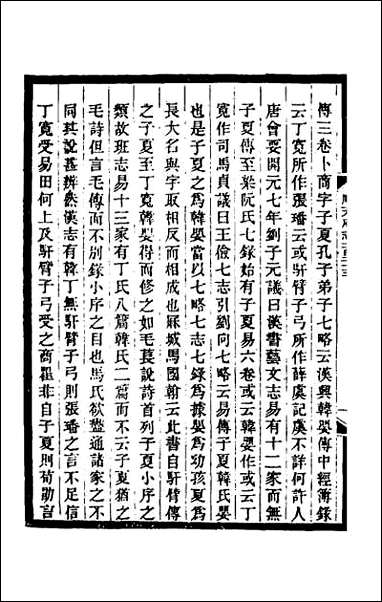 傳三卷卜商字子夏孔子弟子七略云漢興韓嬰傳中經簿錄
云丁寬所作張璠云或馯臂子弓所作薛虞記虞不詳何許人
唐會要開元七年劉子元議曰漢書藝文志易有十二家而無
子夏傳至梁阮氏七錄始有子夏易六卷或云韓嬰作或云丁
寬作司馬貞議曰王儉七志引劉向七略云易傳子夏韓氏嬰
也是子夏之為韓嬰當以七略七志七錄為據嬰為幼孩夏為
長大名與字取相反而相成也冠城馬國翰云此書自馯臂傳
之子夏至丁寬韓嬰得而修之如毛萇說詩首列子夏小序之
類故班志易十三家有丁氏八篇韓氏二篇而不云子夏猶之
毛詩但言毛傳而不別錄小序之目也馬氏欲盡通諸家之不
同其說甚辨然漢志有韓丁無馯臂子弓則張璠之言不足信
丁寬受易田何上及馯臂子弓受之商瞿非自子夏則荀勖言